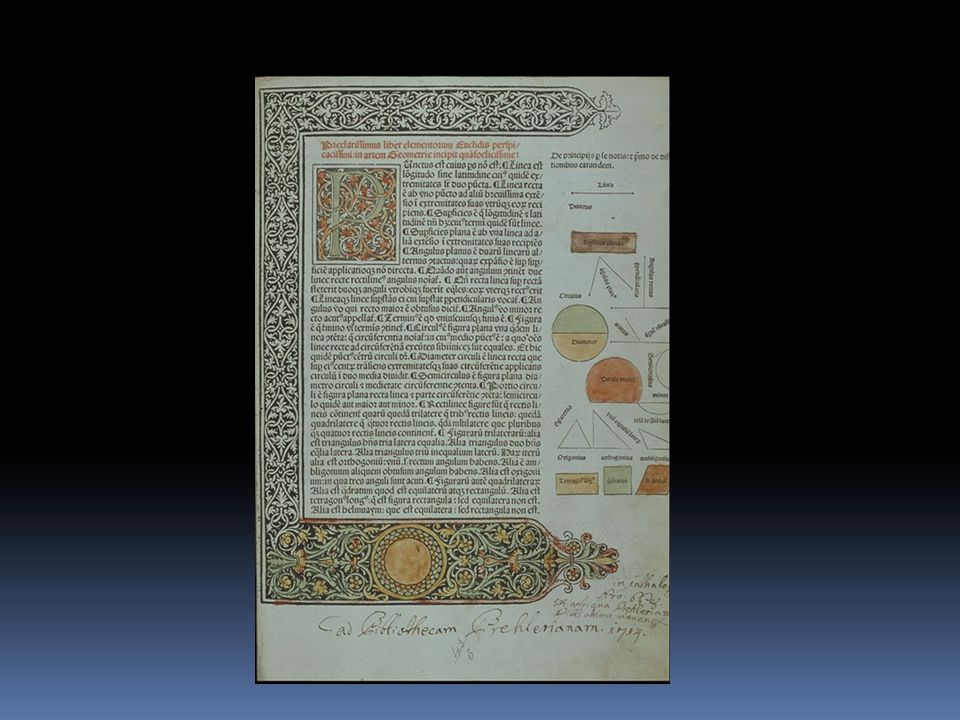 Preclarissimus liber elementorum Euclidis perspi/
cacissimi: in artem Geometrie incipit quãfoelicissime:
Punctus est cuius ps nõ est. ¶ Linea est
lõgitudo sine latitudine cuiꝰ quidē ex/
tremitates st duo pũcta. ¶ Linea recta
ē ab vno pũcto ad aliũ breuissima extē/
sio ī extremitates suas vtrũqꝫ eoꝝ reci
piens. ¶ Supficies ē q̃ lõgitudinē ⁊ lati
tudinē tm̃ hꝫ: cuiꝰ termi quidē sũt linee.
¶ Supficies plana ē ab vna linea ad a/
liã extēsio ī extremitates suas recipiēs
¶ Angulus planus ē duarũ linearũ al/
ternus ꝯtactus: quaꝝ expãsio ē sup sup/
ficiē applicatioqꝫ nõ directa. ¶ Quãdo aũt angulum ꝯtinēt due
linee recte rectilineꝰ angulus noiaf. ¶ Qñ recta linea sup rectã
steterit duoqꝫ anguli vtrobiqꝫ fuerit eq̃les: eoꝝ vterqꝫ rectꝰ erit
¶ Lineaqꝫ linee supstãs ei cui supstat ppendicularis vocat. ¶ An
gulus vo qui recto maior ē obtusus dicit. ¶ Angulꝰ vo minor re
cto acutꝰ appellat. ¶ Terminꝰ ē qd vniuscuiusqꝫ finis ē. ¶ Figura
ē q̃ tmino vl termis ꝯtinet. ¶ Circulꝰ ē figura plana vna qdem li/
nea ꝯtēta: q̃ circũferentia noiat: in cuiꝰ medio pũctꝰ ē: a quo oēs
linee recte ad circũferētiã exeũtes sibiinuicē sut equales. Et hic
quidē pũctꝰ cētrũ circuli dꝛ. ¶ Diameter circuli ē linea recta que
sup eiꝰ centꝝ trãsiens extremitatesqꝫ suas circũferētie applicans
circulũ ī duo media diuidit. ¶ Semicirculus ē figura plana dia/
metro circuli ⁊ medietate circũferentie ꝯtenta. ¶ Portio circu/
li ē figura plana recta linea ⁊ parte circũferētie ꝯtēta: semicircu/
lo quidē aut maior aut minor. ¶ Rectilinee figure sũt q̃ rectis li/
neis cõtinent quarũ quedã trilatere q̃ tribꝰ rectis lineis: quedã
quadrilatere q̃ qtuor rectis lineis. qdã mltilatere que pluribus
qꝫ quatuor rectis lineis continent. ¶ Figurarũ trilaterarũ: alia
est triangulus hñs tria latera equalia. Alia triangulus duo hñs
eq̃lia latera. Alia triangulus triũ inequalium laterũ. Haꝝ iterũ
alia est orthogoniũ: vnũ .s. rectum angulum habens. Alia ē am/
bligonium aliquem obtusum angulum habens. Alia est oxigoni
um: in qua tres anguli sunt acuti. ¶ Figurarũ autē quadrilateraꝝ
Alia est qdratum quod est equilaterũ atqꝫ rectangulũ. Alia est
tetragonꝰ longꝰ: q̃ est figura rectangula: sed equilatera non est.
Alia est helmuaym: que est equilatera: sed rectangula non est.
De principijs p se notis: ⁊ pmo de dif
finitionibus earundem.
Linea
Punctus
Supficies plana
Circulus
Diameter
Portio maior
Oxigonius
orthogonius
ambligonius
Tetragonꝰ lõgꝰ
qdratus
ad Bibliothecam Prehlerianam. 1714.